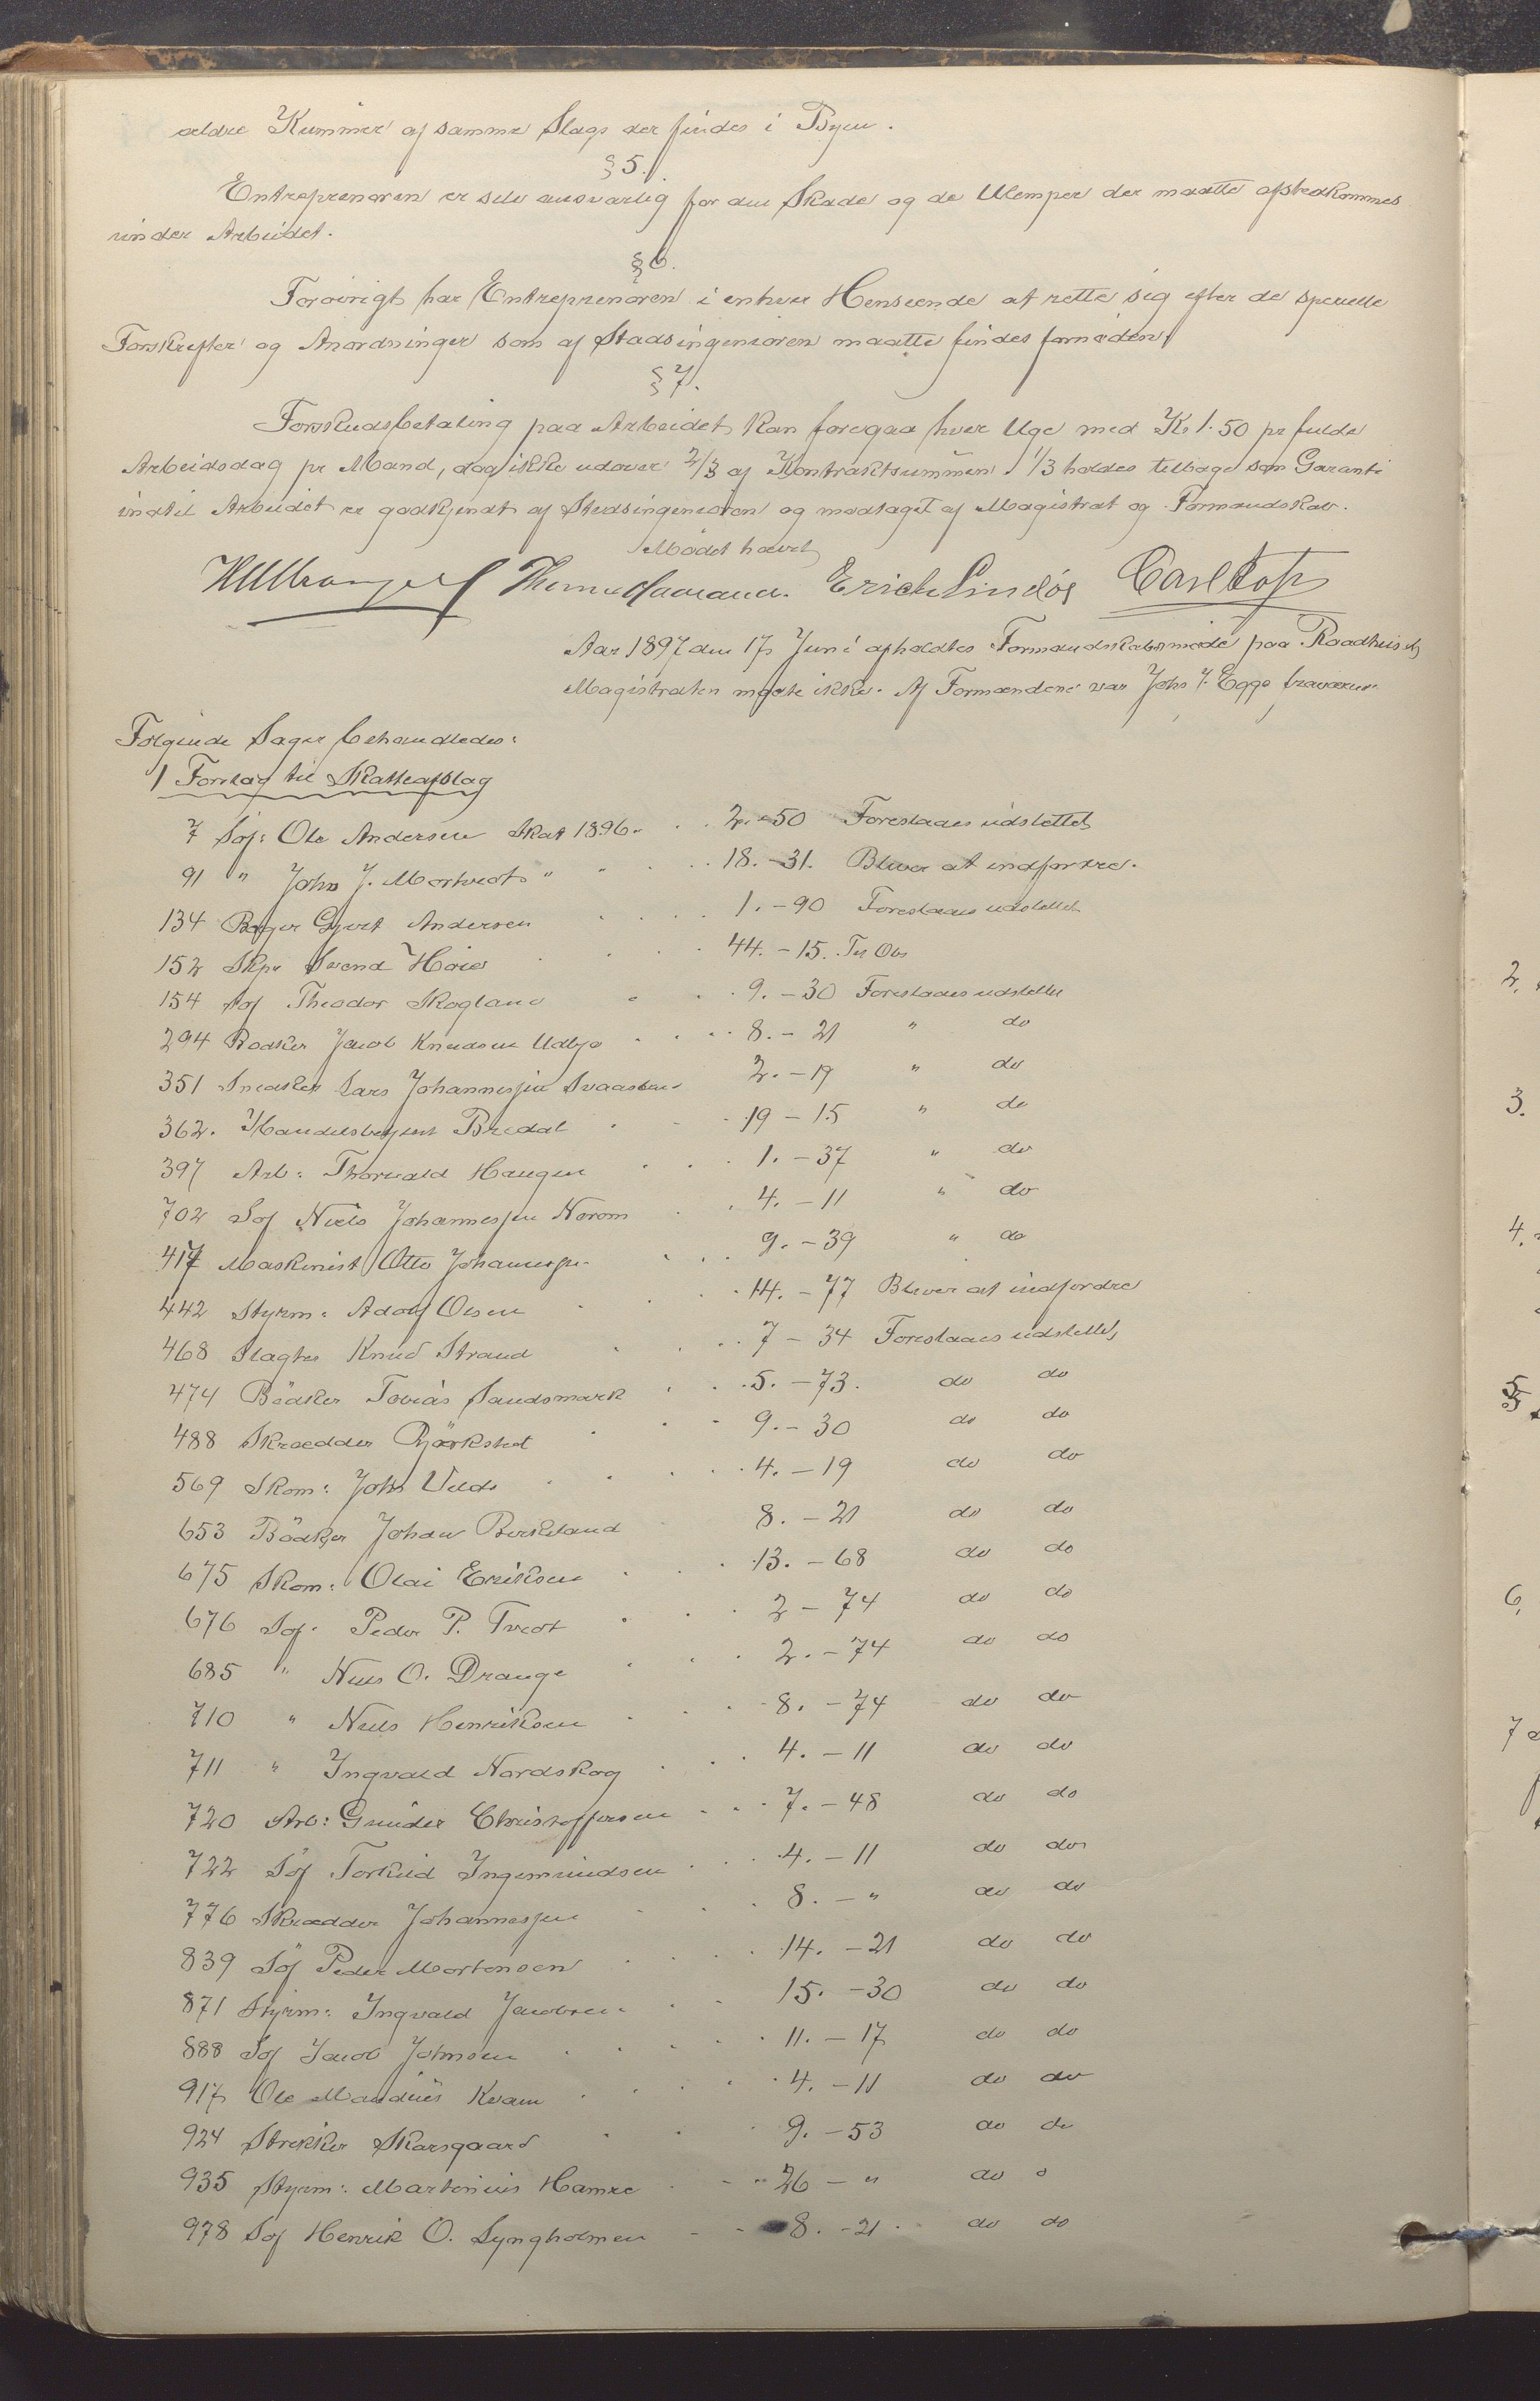 ældre Kummer af samme Slags der findes i Byen.
§ 5.
Entreprenøren er selv ansvarlig for den Skade og de Ulemper der maatte afstedkommes
under Arbeidet.
§ 6.
Forøvrigt har Entreprenøren i enhver Henseende at rette sig efter de specielle
Forskrifter og Anordninger som af Stadsingeniøren maatte findes fornøden
§ 7.
Forskudsbetaling paa Arbeidet kan foregaa hver Uge med Kr 1.50 pr fulde
Arbeidsdag pr Mand, dog ikke udover 2/3 af Kontraktsummen. 1/3 holdes tilbage som Garanti
indtil Arbeidet er godkjendt af Stadsingeniøren og modtaget af Magistrat og Formandskab.
Mødet hævet
Erich Lindøe Carl
Aar 1897 den 17 Juni afholdtes Formandskabsmøde paa Raadhuset
Magistraten mødte ikke. Af Formændene var Johs J. Egge fraværende
Følgende Sager behandledes:
1 Forslag til Skatteafslag
7 Søj: Ole Andersen Skat 1896 . . 2.-50 Foreslaaes udslettet
91 " Johs J. Mortvedt " " . . 18.-31. Bliver at indfordre.
134 Bager Gjert Andersen . . . . 1.-90 Foreslaaes udslettet
152 Skpr Svend Høie . . . 44.-15. Til Obs
154 Søj Theodor Skogland . . . 9.-30 Foreslaaes udslettet
294 Bødker Jacob Knudsen Udbye . . . 8.-21 " do
351 Snedker Lars Johannesen 2.-19 " do
362. Handelsbetjent Bredal . . . 19-15 " do
397 Arb: Thorvald Haugen . . . 1.-37 " do
702 Søj Niels Johannesen . . 4.-11 " do
417 Maskinist Otto Johannesen . . . 9.-39 " do
442 Styrm: Adolf Olsen . . . 14.-77 Bliver at indfordre
468 Slagter Knud Strand . . . 7-34 Foreslaaes udslettet
474 Bødker Tobias Sandsmark . . . 5.-73. do do
488 Skrædder Bjørksted . . . 9.-30 do do
569 Skom: Johs . . . 4.-19 do do
653 Bødker Johan Birkeland 8.-21 do do
675 Skom: Olai Eriksen . . . 13.-68 do do
676 Søj: Peder P. Tvedt . . . 2-74 do do
685 " Niels O. Drange . . . 2.-74 do do
710 " Niels Henriksen . . . 8.-74 do do
711 " Ingvald Nordskog . . . 4.-11 do do
720 Arb: Gunder Christoffersen . . . 7.-48 do do
722 Søj Torkild Ingemundsen . . . 4.-11 do do
776 Skrædder Johannesen . . . 8.-" do do
839 Søj Peder Mortensen . . . 14.-21 do do
871 Styrm: Ingvald Jacobsen . . 15.-30 do do
888 Søj Jacob Johnsen . . . . 11.-17 do do
917 Ole Mandius Kvam . . . . 4.-11 do do
924 Strekker Skarsgaard . . . 9.-53 do do
935 Styrm: Martinius Hamre . . . 26-" do d
978 Søj Henrik O. Lyngholmen . . 8.-21. do do
2.
3.
4.
5
6.
7